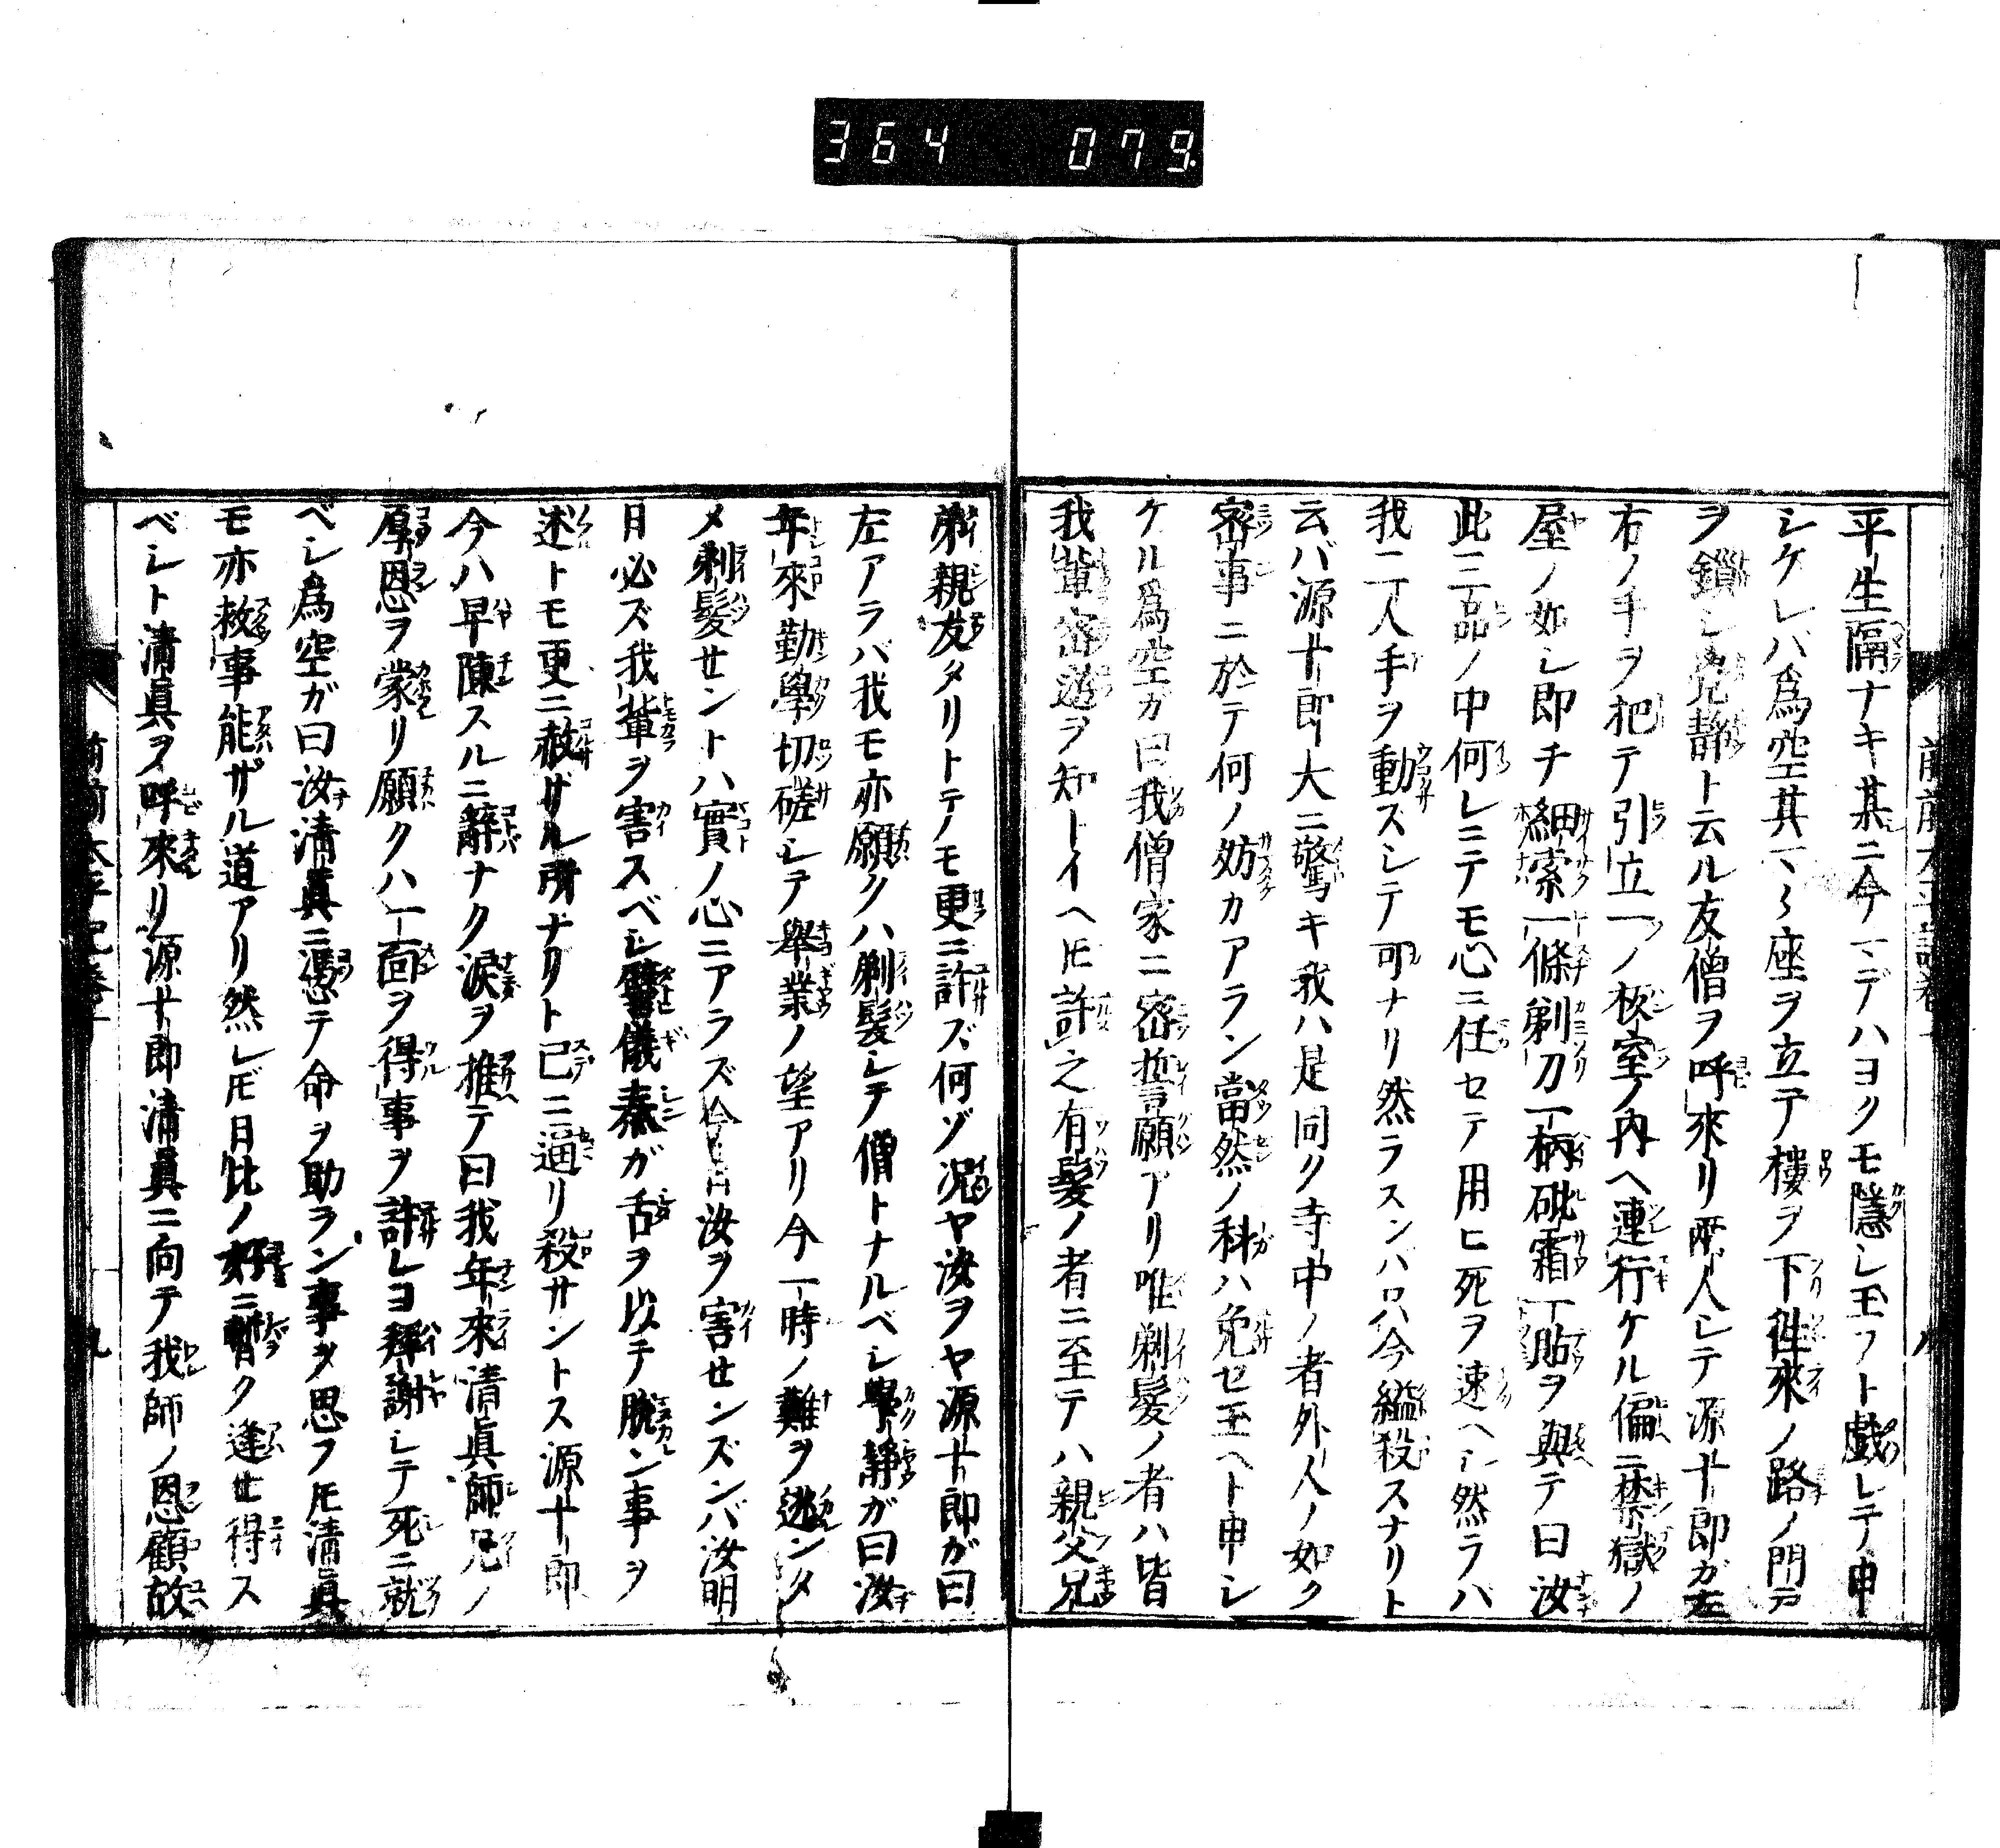 364 079
平生隔ナキ某ニ今マデハヨクモ隱シ玉フト戯レテ申
シケレバ爲空其マヽ座ヲ立テ樓ヲ下徃來ノ路ノ門戸
ヲ鎖シ覚静ト云ル友僧ヲ呼來リ兩人シテ源十郎ガ左
右ノ手ヲ把テ引立一ノ板室ノ内ヘ連行ケル偏ニ禁獄ノ
屋ノ如シ即チ細索一條剃刀一柄砒霜一貼ヲ與テ曰汝
此三品ノ中何レニテモ心ニ任セテ用ヒ死ヲ速ヘシ然ラハ
我二人手ヲ動スシテ可ナリ然ラスンバ只今縊殺スナリト
云バ源十郎大ニ驚キ我ハ是同ク寺中ノ者外人ノ如ク
密事ニ於テ何ノ妨カアラン當然ノ科ハ免セ玉ヘト申シ
ケル爲空ガ曰我僧家ニ密誓願アリ唯剃髪ノ者ハ皆
我輩密遊ヲ知トイヘ𪜈許之有髪ノ者ニ至テハ親父兄
弟親友タリトテノモ更ニ許ズ何ゾ况ヤ汝ヲヤ源十郎が曰
左アラハ我モ亦願クハ剃髪シテ僧トナルベシ學静ガ曰汝
年來勤學切磋シテ舉業ノ望アリ今一時ノ難ヲ遁ンタ
メ剃髪セントハ實ノ心ニアラズ今日汝ヲ害センズンバ汝明
日必ズ我輩ヲ害スベシ譬儀秦ガ舌ヲ以テ脱ン事ヲ
述トモ更ニ赦ザル所ナリト已ニ逼リ殺サントス源十郎
今ハ早陳スルニ辭ナク涙ヲ推テ曰我年來清眞師兄ノ
厚恩ヲ蒙リ願クハ一面ヲ得事ヲ許シヨ拜謝シテ死ニ就
ベシ爲空ガ曰汝清眞ニ憑テ命ヲ助ラン事ヲ思フ𪜈清眞
モ亦救事能ザル道アリ然レ𪜈日比ノ好ニ暫ク逢セ得ス
ベシト清眞ヲ呼來リ源十郎清眞ニ向テ我師ノ恩顧故